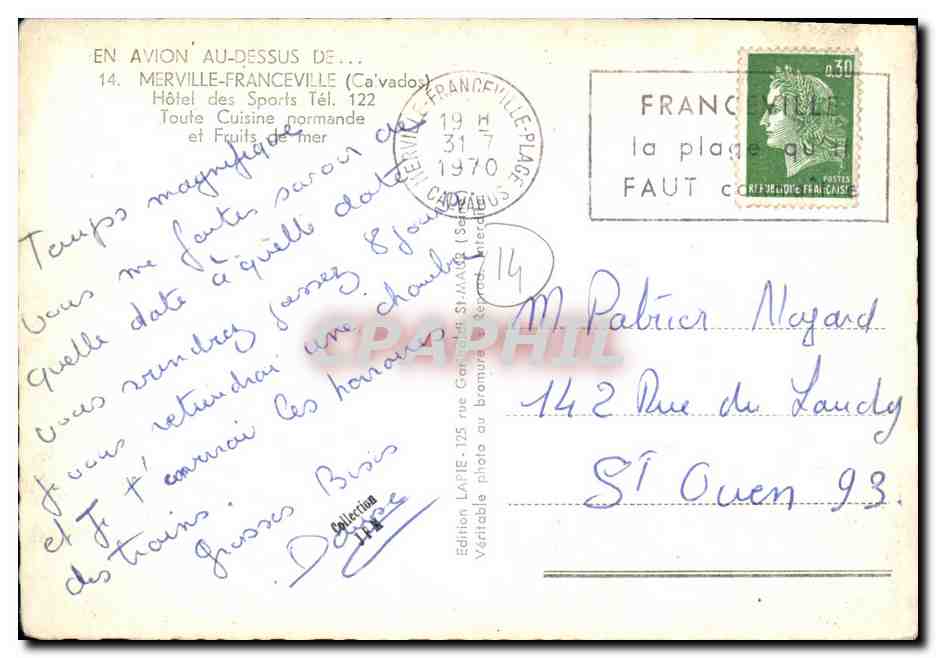 EN AVION AU-DESSUS DE...
14. MERVILLE-FRANCEVILLE (Calvados)
Hôtel des Sports Tél. 122
Toute Cuisine normande
et Fruits de mer
MERVILLE-FRANCEVILLE-PLAGE
19 H
31-7
1970
CALVADOS
FRANCEVILLE
la plage qu'il
FAUT
0,30
POSTES
REPUBLIQUE FRANÇAISE
Temps magnifique
vous me faites savoir de
quelle date à quelle date
vous viendrez passez 8 jours
je vous retiendrai une chambre
et Je t'enverrai les horraires
des trains.
grosses Bises
Denise
Collection
J.P.N
14
CPAPHIL
Edition LAPIE - 125 rue Garibaldi St-MAUR (Se
Véritable photo au bromure - Reprod. interdite
M Patrice Noyard
142 Rue du Landy
St Ouen 93.